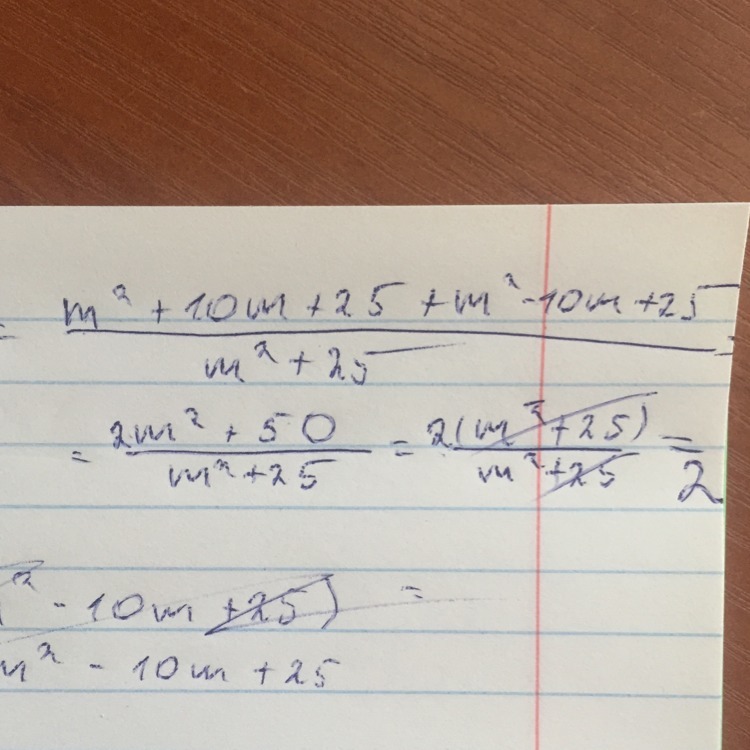 = m² + 10m + 25 + m² - 10m + 25 =
m² + 25
= 2m² + 50 = 2(m² + 25) =
m² + 25 m² + 25 2
² - 10m + 25) =
m² - 10m + 25